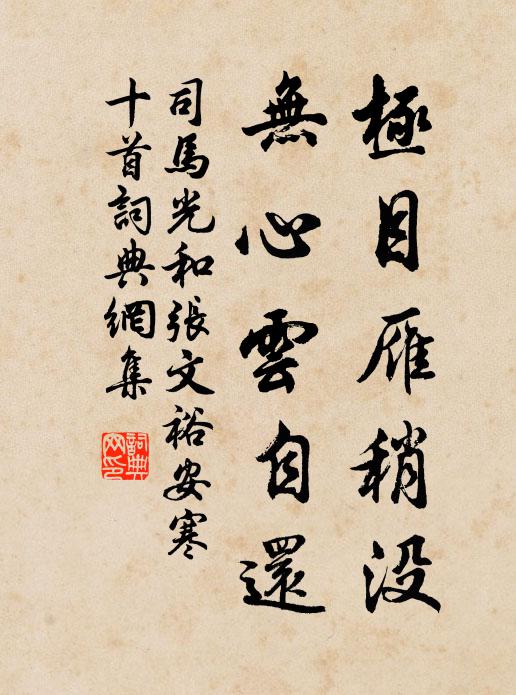 極目雁稍没
無心雲自還
司馬光和張文裕安寒
十首詞典網集
詞典
网印